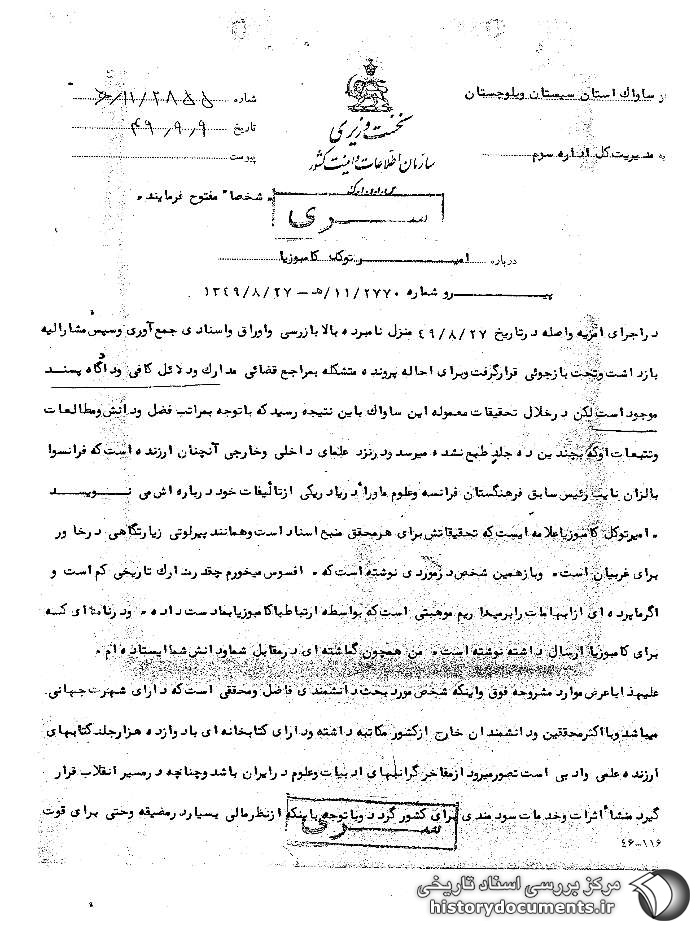 از ساواك استان سیستان وبلوچستان
به مدیریت كل اداره سوم
نخست وزیری
سازمان اطلاعات و امنیت كشور
س.ا.و.ا.ك
شماره ۲۸۵۵/۱۱/ﻫ
تاریخ ۴۹,۹,۹
پیوست
شخصا" مفتوح فرمایند.
ســـری
درباره امیــرتوكل كامبوزیا
پیــرو شماره ۲۷۷۰/۱۱/ﻫ - ۱۳۴۹/۸/۲۷
در اجرای امریه واصله درتاریخ ۴۹/۸/۲۷ منزل نامبرده بالا بازرسی واوراق واسنادی جمع آوری وسپس مشارالیه
بازداشت وتحت بازجوئی قرارگرفت وبرای احاله پرونده متشكله بمراجع قضائی مدارك ودلائل كافی ودادگاه پسند
موجود است لكن درخلال تحقیقات معموله این ساواك باین نتیجه رسید كه باتوجه بمراتب فضل ودانش ومطالعات
وتتبعات اوكه بچندین ده جلد طبع نشده میرسد ودرنزد علمای داخلی وخارجی آنچنان ارزنده است كه فرانسوا
بالزان نایب رئیس سابق فرهنگستان فرانسه وعلوم ماوراء دریا دریكی ازتألیفات خود درباره اش می نویســد
. امیرتوكل كامبوزیا علامه ایست كه تحقیقاتش برای هرمحقق منبع اسناد است وهمانند پیرلوتی زیارتگاهی درخاور
برای غربیان است. وبازهمین شخص درموردی نوشته است كه . افسوس میخورم چقدر مدارك تاریخی كم است و
اگرماپرده ای ازابهامات رابرمیداریم موهبتی است كه بواسطه ارتباط باكامبوزیا بمادست داده . ودرنامه ای كــه
برای كامبوزیا ارسال داشته نوشته است. من همچون گماشته ای درمقابل شما ودانش شما ایستاده ام .
علیهذا باعرض موارد مشروحه فوق واینكه شخص مورد بحث دانشمندی فاضل ومحققی است كه دارای شهرت جهانی
میباشد وبا اكثرمحققین ودانشمندان خارج ازكشور مكاتبه داشته ودارای كتابخانه ای بادوازده هزارجلد كتابهای
ارزنده علمی وادبی است تصورمیرود ازمفاخر گرانبهای ادبیات وعلوم درایران باشد وچنانچه درمسیر انقلاب قرار
گیرد منشأ اثرات وخدمات سودمندی برای كشور گردد وباتوجه باینكه ازنظرمالی بسیار درمضیقه وحتی برای قوت
ســـری
۴۶-۱۱۶
مركز بررسی اسناد تاریخی
historydocuments.ir